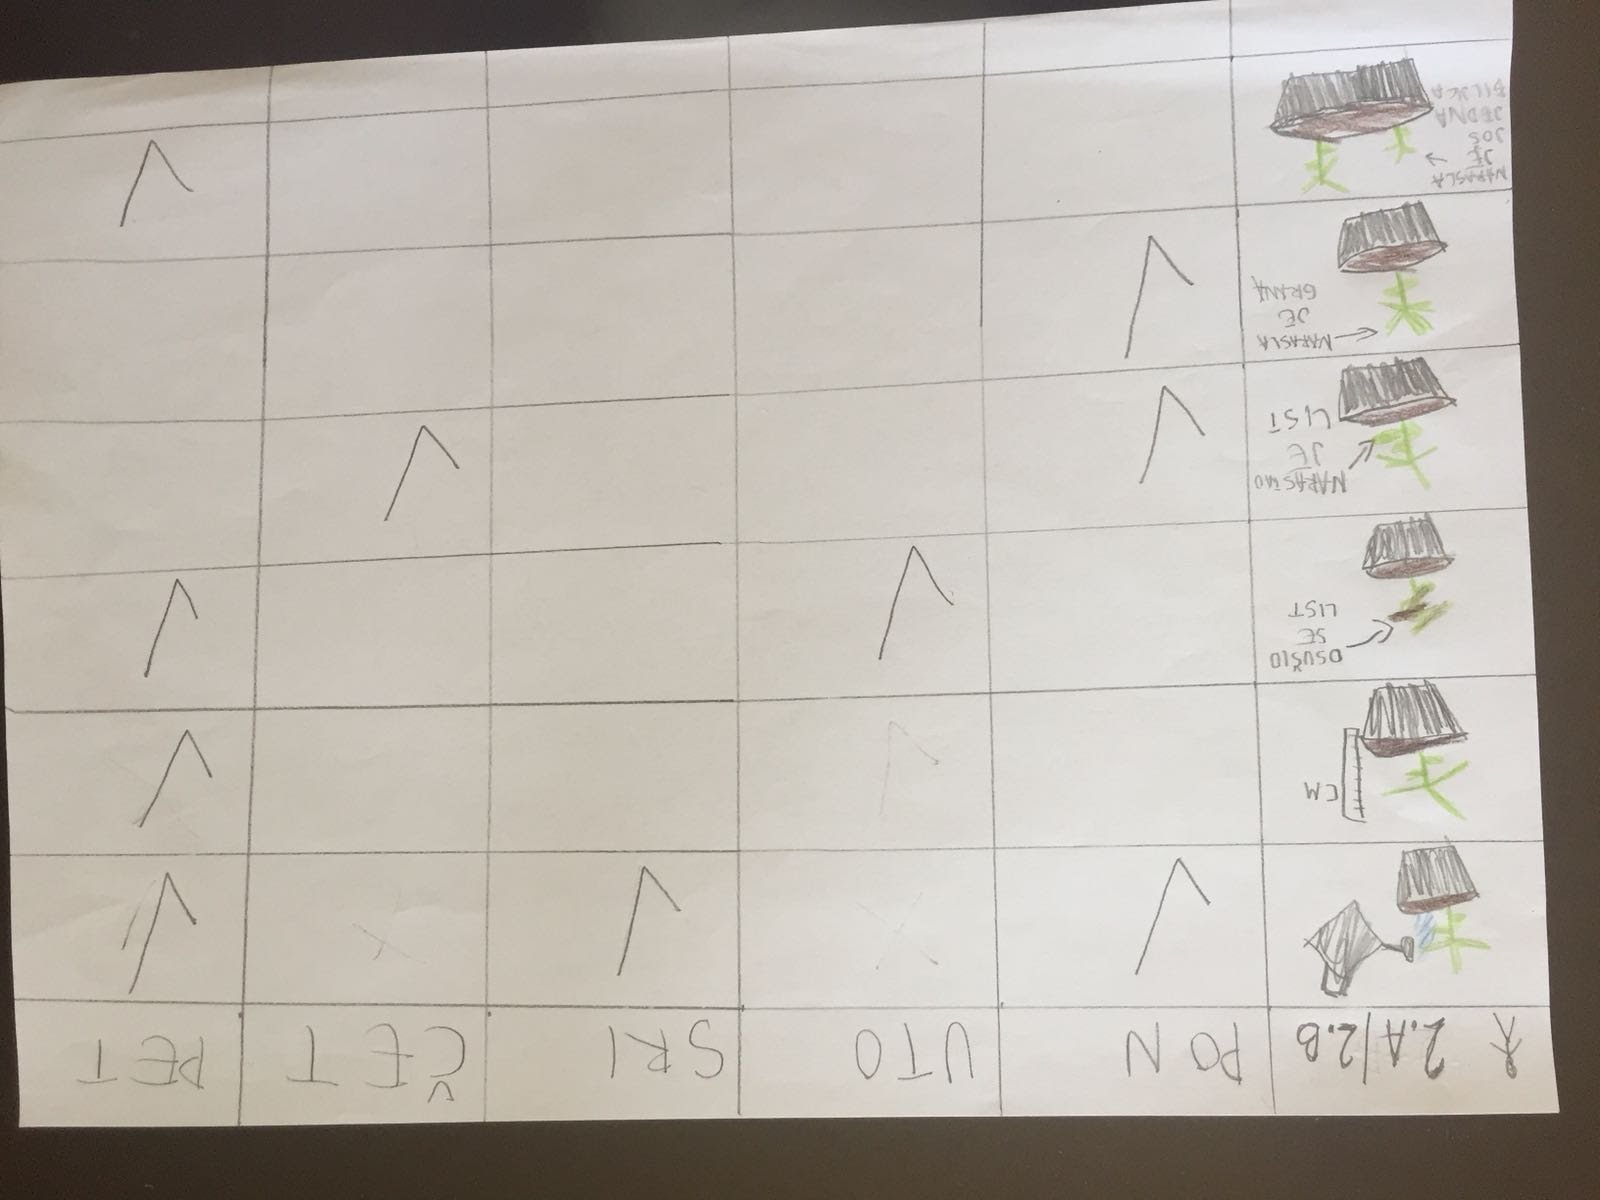 2.A/2.B PON UTO SRI ČET PET
CM
OSUŠIO
SE
LIST
NARASTAO
JE
LIST
NARASLA
JE
GRANA
NARASLA
JE
JOS
JEDNA
BILJKA